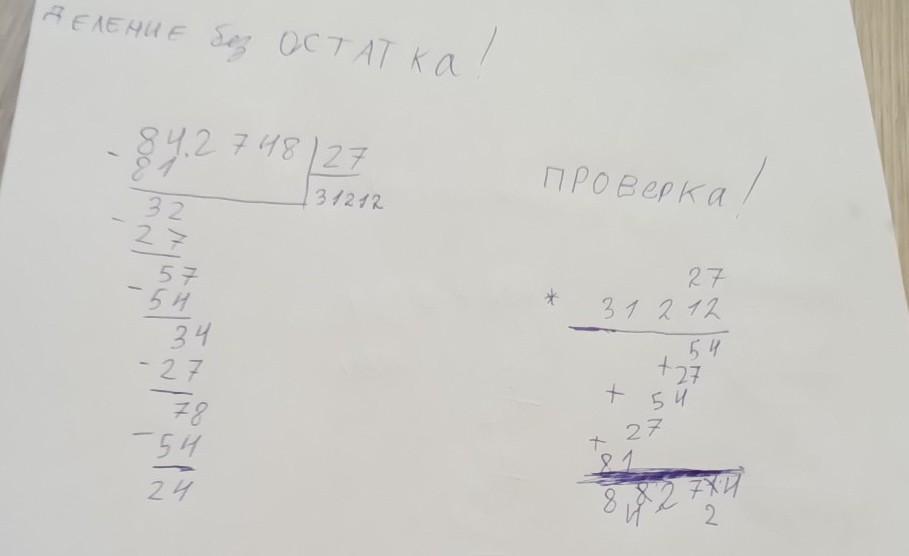 ДЕЛЕНИЕ без ОСТАТка!
- 84.2 7 48 | 27
81 31212
- 32
27
- 57
54
34
- 27
78
- 54
24
ПРОВеРКа!
27
* 31 2 12
54
+ 27
+ 54
+ 27
81
8 8 2 7 4
4 2